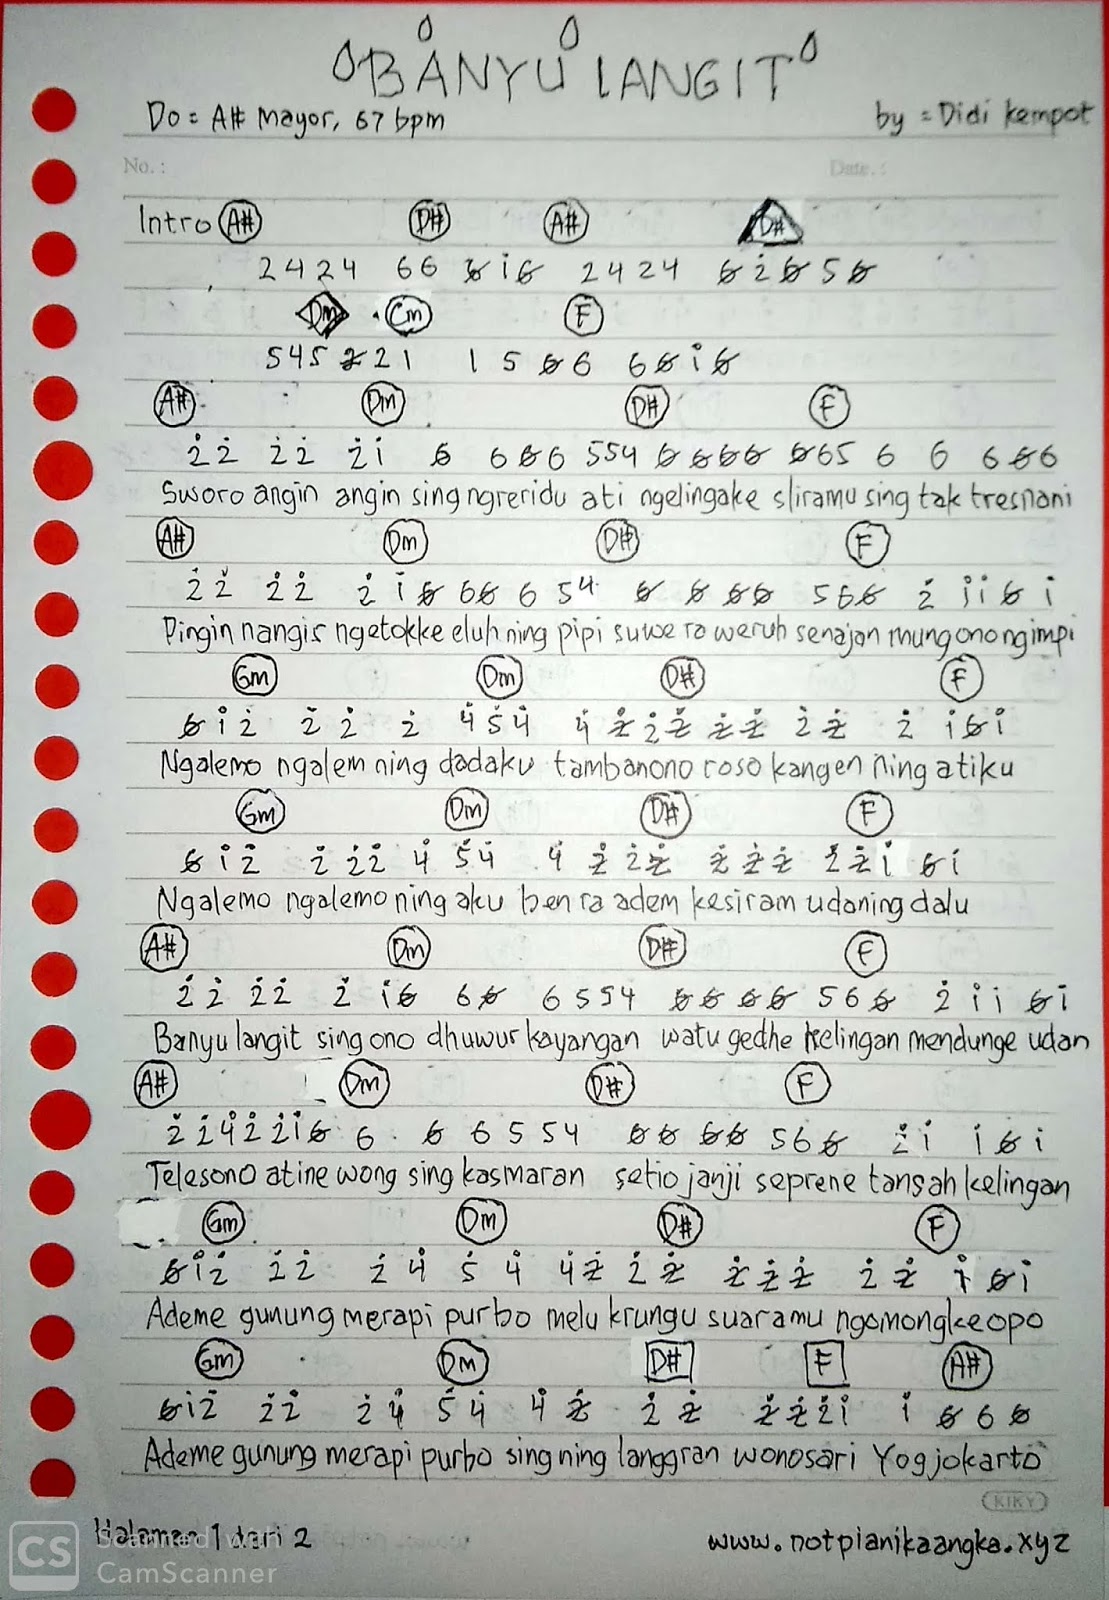 BANYU LANGIT
Do = A# Mayor, 67 bpm by = Didi Kempot
No. : Date. :
Intro A# D# A# D#
2424 66 6̸ i̇ 6̸ 2424 6̸ 2̇ 6̸ 5 6̸
Dm Cm F
545 2̸21 1 5 6̸6 66̸ i̇ 6̸
A# Dm D# F
2̇2̇ 2̇2̇ 2̇i̇ 6̸ 66̸6 554 6̸6̸6̸6̸ 6̸65 6 6 66̸6
Sworo angin angin sing ngreridu ati ngelingake sliramu sing tak tresnani
A# Dm D# F
2̇2̇ 2̇2̇ 2̇i̇6̸ 66̸ 6 54 6̸ 6̸ 6̸6̸ 566̸ 2̇ i̇i̇ 6̸ i̇
Pingin nangis ngetokke eluh ning pipi suwe ra weruh senajan mung ono ngimpi
Gm Dm D# F
6̸i̇2̇ 2̇ 2̇ 2̇ 4̇5̇4̇ 4̇ 2̸̇2̇2̸̇ 2̸̇2̸̇ 2̇2̸̇ 2̇ i̇6̸i̇
Ngalemo ngalem ning dadaku tambanono roso kangen ning atiku
Gm Dm D# F
6̸i̇2̇ 2̇2̇2̇ 4̇ 5̇4̇ 4̇ 2̸̇ 2̇2̸̇ 2̸̇2̸̇2̸̇ 2̸̇2̸̇i̇ 6̸i̇
Ngalemo ngalemo ning aku ben ra adem kesiram udaning dalu
A# Dm D# F
2̇2̇ 2̇2̇ 2̇ i̇6̸ 66̸ 6554 6̸6̸ 6̸6̸ 566̸ 2̇ i̇i̇ 6̸i̇
Banyu langit sing ono dhuwur kayangan watu gedhe kelingan mendunge udan
A# Dm D# F
2̇2̇4̇2̇2̇i̇6̸ 6 6̸ 6554 6̸6̸ 6̸6̸ 566̸ 2̇i̇ i̇6̸i̇
Telesono atine wong sing kasmaran setio janji seprene tansah kelingan
Gm Dm D# F
6̸i̇2̇ 2̇2̇ 2̇4̇ 5̇4̇ 4̇2̸̇ 2̇2̸̇ 2̸̇2̸̇2̸̇ 2̇2̸̇ i̇6̸i̇
Ademe gunung merapi purbo melu krungu suaramu ngomongke opo
Gm Dm D# F A#
6̸i̇2̇ 2̇2̇ 2̇4̇ 5̇4̇ 4̇2̸̇ 2̇2̸̇ 2̸̇2̸̇2̇i̇ i̇ 6̸66̸
Ademe gunung merapi purbo sing ning langgran wonosari Yogjokarto
KIKY
Halaman 1 dari 2 www.notpianikaangka.xyz
CS Scanned with
CamScanner